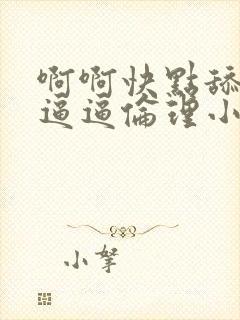 啊啊快點舔
逼逼倫理小
小拏